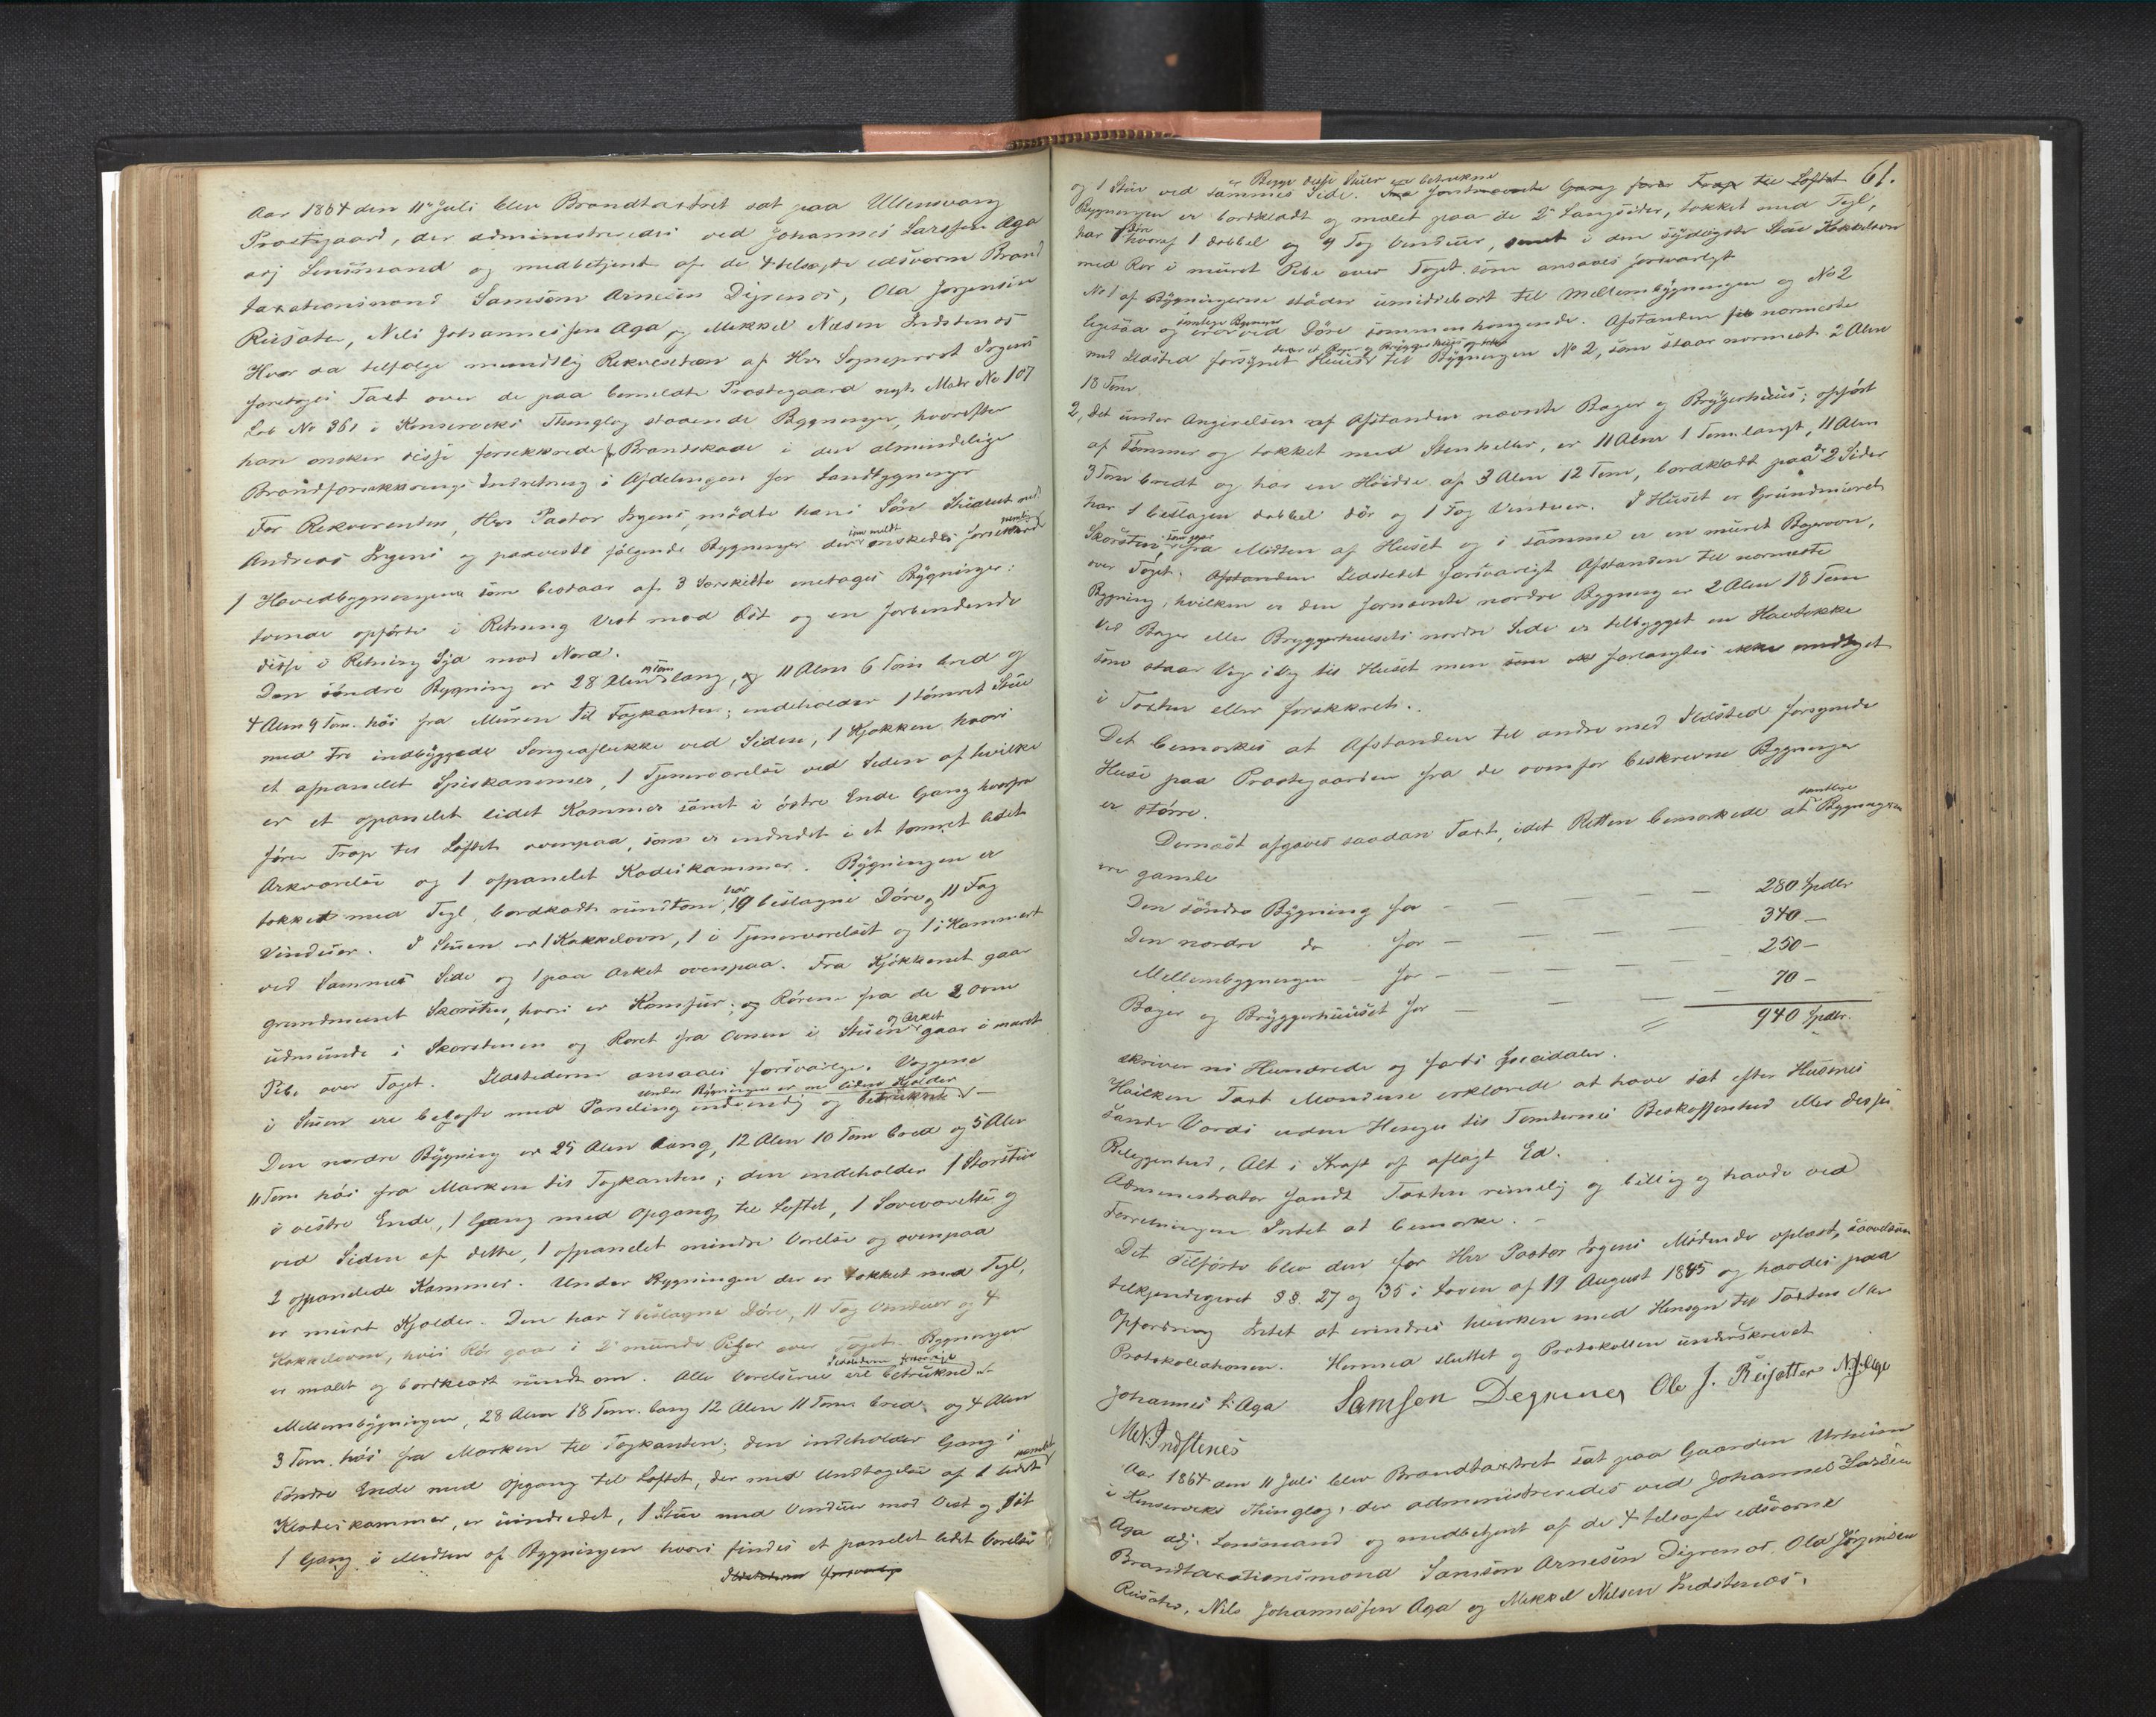 Aar 1864 den 11te Juli blev Brandtaxtret sat paa Ullensvang
Prostegaard, der administreredes ved Johannes Larssen Aga
adj Lensmand og medbetjent af de 4 tilsagte edsvorne Brand
taxationsmænd Samson Arnesen Digrenæs, Ola Jørgensen
Reisæter, Nils Johannessen Aga og Mikkel Nilsen Indstenæs
Hvor da tilfølge mundtlig Rekvisition af Hrr Sogneprest Irgens
foretages Taxt over de paa bemeldte Prostegaard nye Matr No 107
Løb No 361 i Kinserviks Thinglag staaende Bygninger, hvorefter
han ønsker disse forsikkrede f Brandskade i den almindelige
Brandforsikkrings Indretning i Afdelingen for Landbygninger
For Rekvirenten, Hrr Pastor Irgens, mødte hans Søn Student
Andreas Irgens og paaviste følgende Bygninger der ønskedes forsikkred
1 Hovedbygningen som bestaar af 3 særskilte enetages Bygninger:
tvende opførte i Retning Vest mod Øst og en forbindende
disse i Retning Syd mod Nord.
Den søndre Bygning er 28 Alen lang, og 11 Alen 6 Tom bred og
4 Alen 9 Tom. høi fra Muren til Tagkanten; indeholder 1 tømret Stue
med tre indbyggede Sengeaflukke ved Siden, 1 Kjøkken hvori
et afpanelet Spiskammer, 1 Tjenerværelse ved Siden af hvilke
er et afpanelet lidet Kammer samt i østre Ende Gang hvorfra
fører Trap til Loftet ovenpaa, som er indredet i et tømret lidet
Arkværelse og 1 afpanelet Klædeskammer. Bygningen er
tækket med Tegl, bordklædt rundtom, har 19 beslagne Døre, 11 Fag
Vinduer. I Stuen er 1 Kakkelovn, 1 i Tjenerværelset og 1 i Kammert
ved Sammes Side og 1 paa Arket ovenpaa. Fra Kjøkkenet gaar
grundmuret Skorsten, hvori er Komfur; og Rørene fra de 2 Ovne
udmunde i Skorstenen og Røret fra Ovnen i Stuen og Arket gaar i muret
Pibe over Taget. Ildstederne ansaaes forsvarlige. Væggene
under Bygningen er en liden Kjelder
i Stuen ere belagte med Paneling indvendig og betrukne
Den nordre Bygning er 25 Alen lang, 12 Alen 10 Tom bred og 5 Alen
11 Tom høi fra Marken til Tagkanten; den indeholder 1 Storstue
i vestre Ende, 1 Gang med Opgang til Loftet, 1 Soveværelse og
ved Siden af dette, 1 afpanelet mindre Værelse og ovenpaa
2 afpanelede Kammer. Under Bygningen der er tækket med Tegl,
er muret Kjelder. Den har 7 beslagne Døre, 11 Fag Vinduer og 4
Kakkelovne, hvis Rør gaar i 2de murede Piber over Taget. Bygningen
er malet og bordklædt rundt om. Alle Værelserne ere betrukne
Ildstederne forsvarlige
Mellembygningen, 28 Alen 18 Tom. lang 12 Alen 11 Tom bred og 4 Alen
3 Tom. høi fra Marken til Tagkanten; den indeholder Gang i
søndre Ende med Opgang til Loftet, der med Undtagelse af 1 lidet panelet
Klædeskammer, er uindredet, 1 Stue med Vinduer mod Vest og Øst
1 Gang i Midten af Bygningen hvori findes et panelet lidet Værelse
Ildstederne forsvarlige
61.
Begge disse Stuer ere betrukne
og 1 Stue ved sammes Side. Fra førstnævnte Gang fører Trap til Loftet
Bygningen er bordklædt og malet paa de 2de Langsider, tækket med Tegl,
har 7 Døre hvoraf 1 dobbel og 9 Fag Vinduer, samt i den sydligste Stue Kakkelovn
med Rør i muret Pibe over Taget som ansaaes forsvarligt
No 1 af Bygningerne støder umiddelbart til Mellembygningen og No 2
ligesaa og samtlige Bygninger ere ved Døre sammenhængende. Afstanden fra nærmeste
med Ildsted forsynet Huus til Bygningen No 2, som staar nærmest 2 Alen
18 Tom.
2, Det under Angivelsen af Afstanden nævnte Bager og Bryggerhuus; opført
af Tømmer og tækket med Stenheller, er 11 Alen 1 Tom langt, 11 Alen
3 Tom bredt og har en Høide af 3 Alen 12 Tom, bordklædt paa de 2 Sider
har 1 beslagen dobbel Dør og 1 Fag Vinduer. I Huset er Grundmuret
Skorsten, som gaar fra Midten af Huset og i samme er en muret Bagerovn,
over Taget; Afstanden Ildstedet forsvarligt Afstanden til nærmeste
Bygning, hvilken er den fornævnte nordre Bygning er 2 Alen 18 Tom
Ved Bager eller Bryggerhuusets nordre Side er tilbygget en
som staar Væg i Væg til Huset men som forlangtes ikke medtaget
i Taxten eller forsikkret.
Det bemærkes at Afstanden til andre med Ildsted forsynede
Huse paa Prostegaarden fra de ovenfor beskrevne Bygninger
er større.
Dernæst afgaves saadan Taxt, idet Retten bemærkede at samtlige Bygninger
ere gamle
Den søndre Bygning for — — — — 280 Spdlr
Den nordre do for — — — — 340 —
Mellembygningen for — — — — 250 —
Bager og Bryggerhuuset for — — — — 70 —
= 940 Spdlr.
skriver ni Hundrede og førti Speciedaler.
Hvilken Taxt Mændene erklærede at have sat efter Husenes
sande Værdi uden Hensyn til Tomternes Beskaffenhed eller disses
Beliggenhed, Alt i Kraft af aflagt Ed.
Administrator fandt Taxten rimelig og billig og havde ved
Forretningen Intet at bemærke. —
Det Tilførte blev den for Hrr Pastor Irgens Mødende oplæst, saavelsom
tilkjendegivet §§. 27 og 35 i Loven af 19 August 1845 og havdes paa
Opfordring Intet at erindres hverken med Hensyn til Taxten eller
Protokollationen. Hermed sluttet og Protokollen underskrevet
Johannes L. Aga Samsen Degrenes Ole J. Reisæter N. J. Aga
M. N. Indstenes
Aar 1864 den 11 Juli blev Brandtaxtret sat paa Gaarden Urheim
i Kinserviks Thinglag, der administreredes ved Johannes Larsen
Aga adj. Lensmand og medbetjent af de 4 tilsagte edsvorne
Brandtaxationsmænd Samson Arnesen Digrenæs, Ola Jørgensen
Reisæter, Nils Johannessen Aga og Mikkel Nilsen Indstenæs.